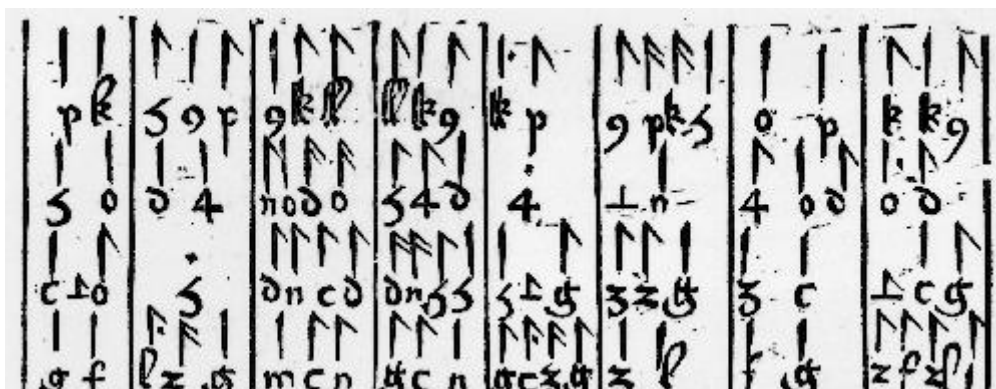 p k 5 9 p 9 k k k k 9 k p 9 p k 5 o p k k 9
5 o d 4 n o d o 5 4 d 4 1 n 4 o d o d
c 1 o 5 d n c d d n 5 5 5 1 g 3 z g 3 c 1 c g
g f l z g m c n g c n g c z g 3 l f g z f z